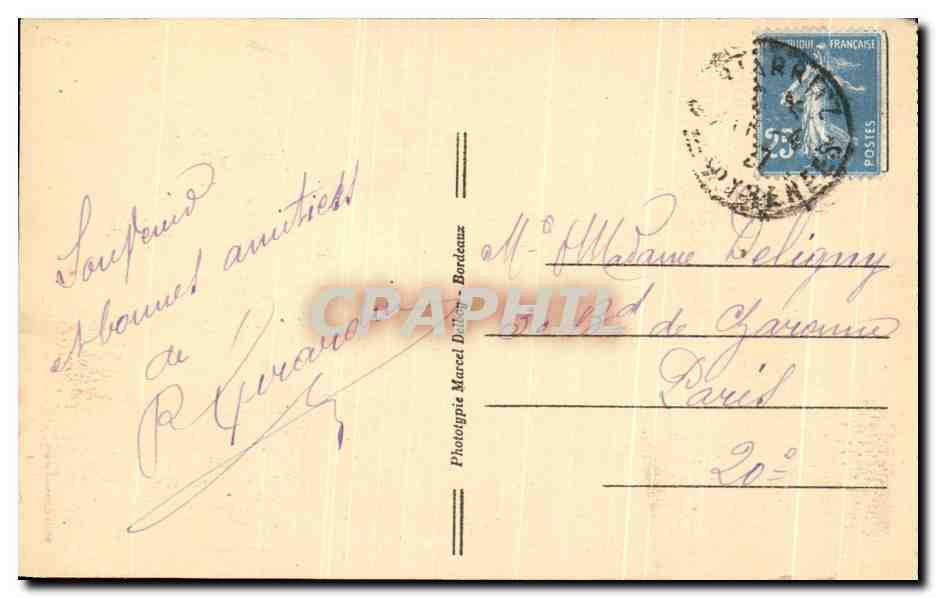 Souvenir
et bonnes amitiés
de
R Girardin
Phototypie Marcel Delboy - Bordeaux
RÉPUBLIQUE FRANÇAISE
25
POSTES
BIARRITZ
PYRENEES
Mr & Madame Deligny
Bd de Charonne
Paris
20e
CPAPHIL